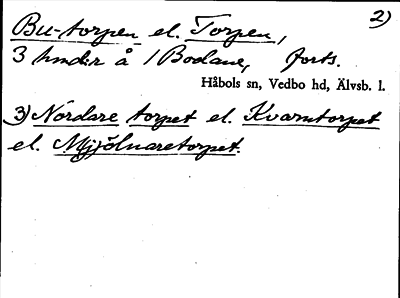 2)
Bu-torpen el. Torpen,
3 hmdr å 1 Bodane, forts.
Håbols sn, Vedbo hd, Älvsb. l.
3) Nordare torpet el. Kvarntorpet
el. Mjölnaretorpet.